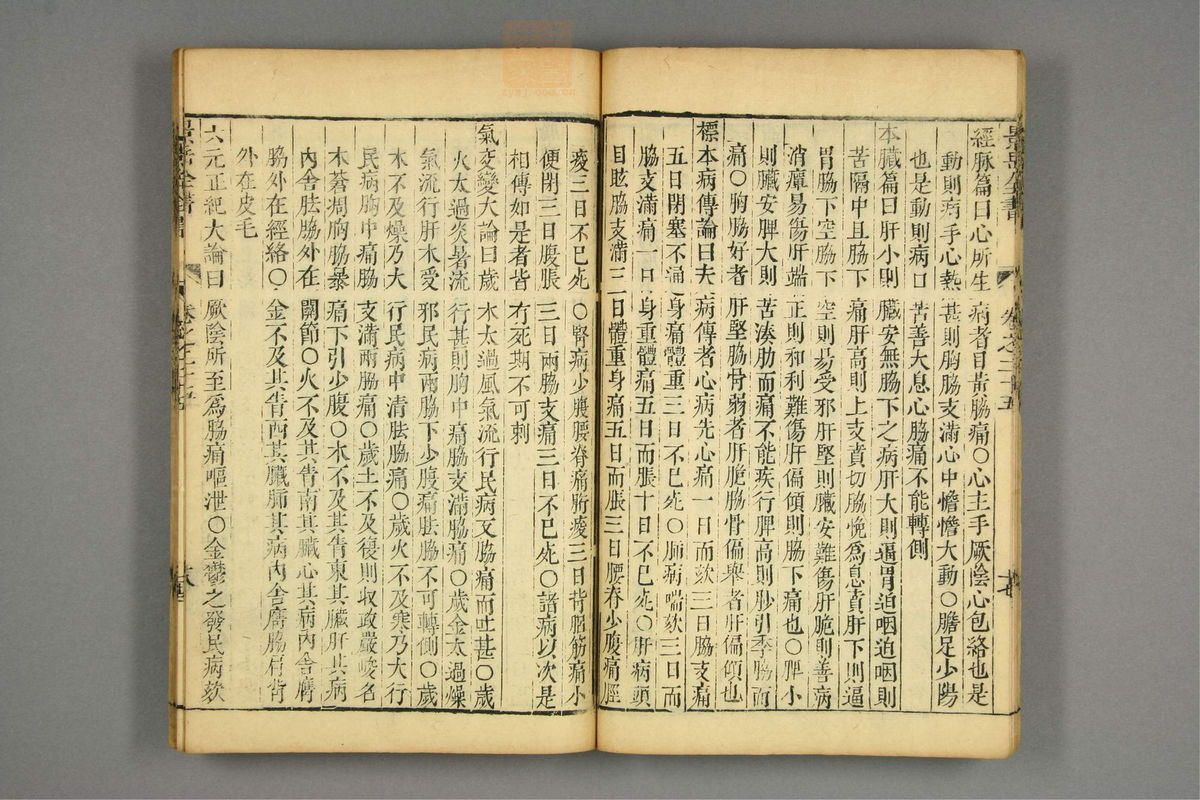 經脉篇曰心所生病者目黃脇痛〇心主手厥陰心包絡也是
動則病手心熱甚則胸脇支滿心中憺憺大動〇膽足少陽
也是動則病口苦善大息心脇痛不能轉側
本臟篇曰肝小則臟安無脇下之病肝大則逼胃迫咽迫咽則
苦隔中且脇下痛肝高則上支賁切脇悗爲息賁肝下則逼
胃脇下空脇下空則易受邪肝堅則臟安難傷肝脆則善病
消癉易傷肝端正則和利難傷肝偏傾則脇下痛也〇脾小
則臟安脾大則苦湊肋而痛不能疾行脾高則眇引季脇而
痛〇胸脇好者肝堅脇骨弱者肝脆脇骨偏舉者肝偏傾也
標本病傳論曰夫病傳者心病先心痛一日而欬三日脇支痛
五日閉塞不通身痛體重三日不已死〇肺病喘欬三日而
脇支滿痛一日身重體痛五日而脹十日不已死〇肝病頭
目眩脇支滿三日體重身痛五日而脹三日腰脊少腹痛脛
痠三日不已死〇腎病少腹腰脊痛胻痠三日背𦛗筋痛小
便閉三日腹脹三日兩脇支痛三日不已死〇諸病以次是
相傳如是者皆有死期不可刺
氣交變大論曰歲木太過風氣流行民病又脇痛而吐甚〇歲
火太過炎暑流行甚則胸中痛脇支滿脇痛〇歲金太過燥
氣流行肝木受邪民病兩脇下少腹痛胠脇不可轉側〇歲
木不及燥乃大行民病中清胠脇痛〇歲火不及寒乃大行
民病胸中痛脇支滿兩脇痛〇歲土不及復則收政嚴峻名
木蒼凋胸脇暴痛下引少腹〇木不及其眚東其臟肝其病
內舍胠脇外在關節〇火不及其眚南其臟心其病內舍膺
脇外在經絡〇金不及其眚西其臟肺其病內舍膺脇肩背
外在皮毛
六元正紀大論曰厥陰所至爲脇痛嘔泄〇金鬱之發民病欬